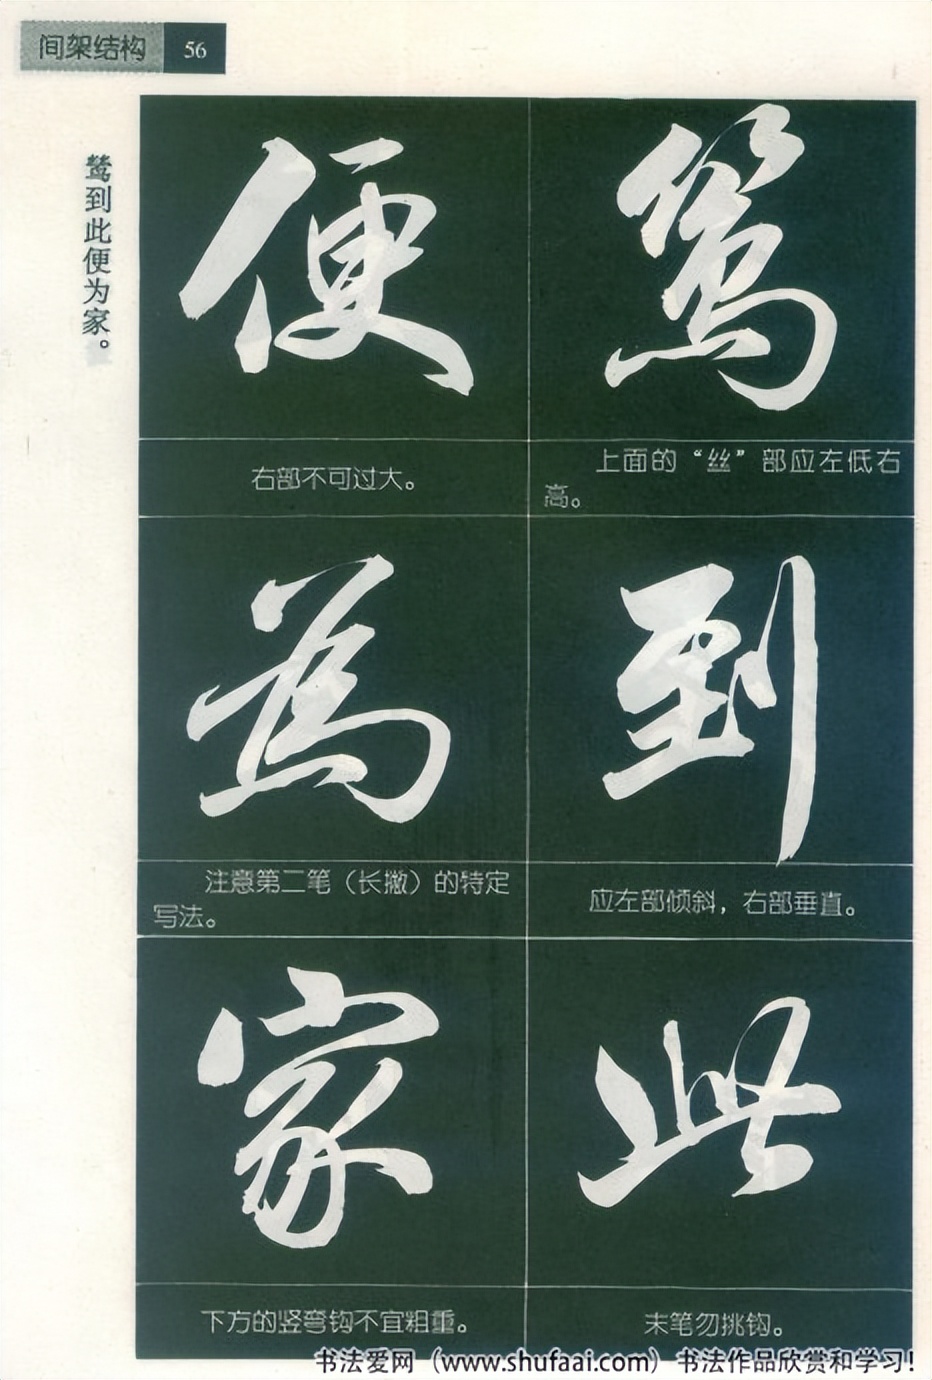 间架结构 56
鸶到此便为家。
鸶
上面的“丝”部应左低右
高。
到
应左部倾斜，右部垂直。
此
末笔勿挑钩。
便
右部不可过大。
為
注意第二笔（长撇）的特定
写法。
家
下方的竖弯钩不宜粗重。
书法爱网（www.shufaai.com）书法作品欣赏和学习！